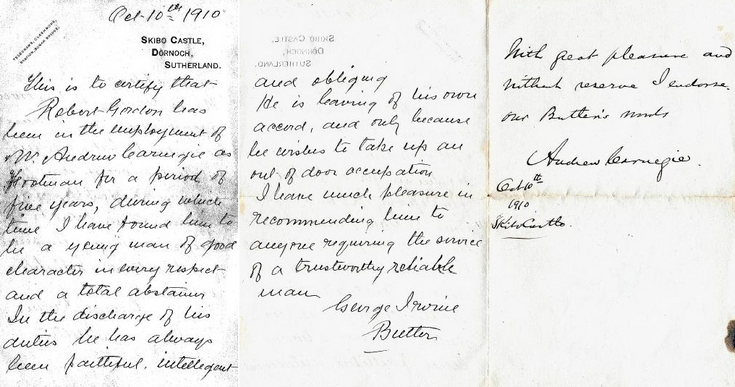 Oct 10th 1910
SKIBO CASTLE,
DORNOCH,
SUTHERLAND.
This is to certify that
Robert Gordon has
been in the employment of
Mr. Andrew Carnegie as
Footman for a period of
five years, during which
time I have found him to
be a young man of good
character in every respect
and a total abstainer
In the discharge of his
duties he has always
been faithful, intelligent
and obliging
He is leaving of his own
accord, and only because
he wishes to take up an
out of door occupation
I have much pleasure in
recommending him to
anyone requiring the service
of a trustworthy reliable
man
George Irvine
Butler
With great pleasure and
without reserve I endorse
our Butler's words
Andrew Carnegie.
Oct 10th
1910
Skibo Castle.